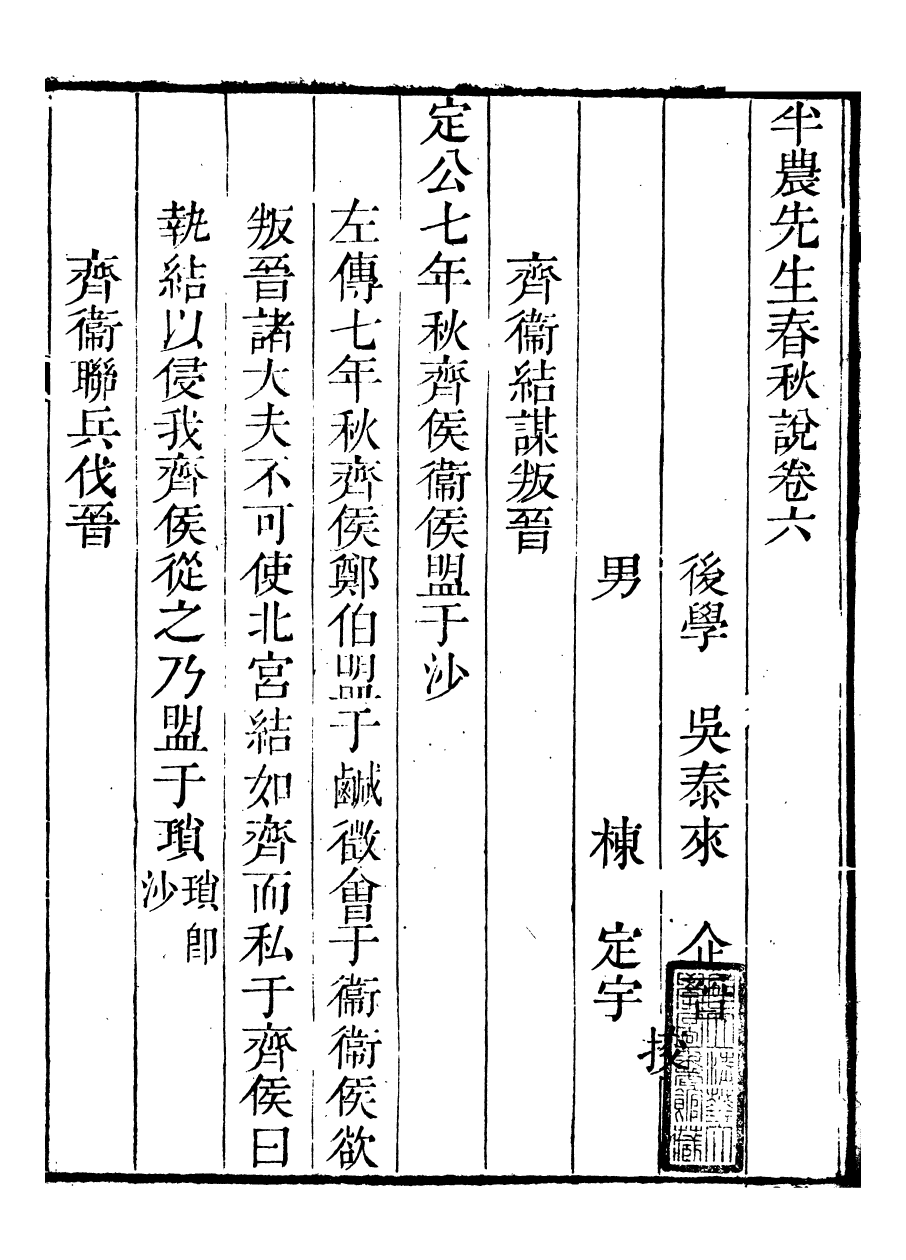 半農先生春秋說卷六
後學 吳泰來 企晉
男 棟 定宇
挍
齊衞結謀叛晉
定公七年秋齊侯衞侯盟于沙
左傳七年秋齊侯鄭伯盟于鹹徵會于衞衞侯欲
叛晉諸大夫不可使北宮結如齊而私于齊侯曰
執結以侵我齊侯從之乃盟于瑣瑣卽沙
齊衞聯兵伐晉